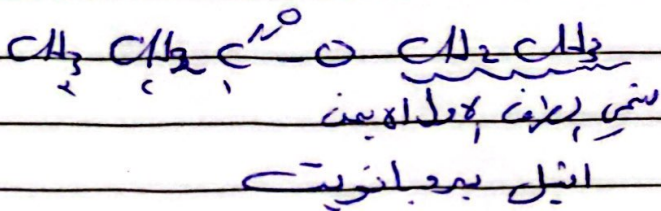 O
CH3 CH2 C - O CH2 CH3
٣ ٢ ١
نسمي الطرف الاول الايمن
اثيل بروبانويت